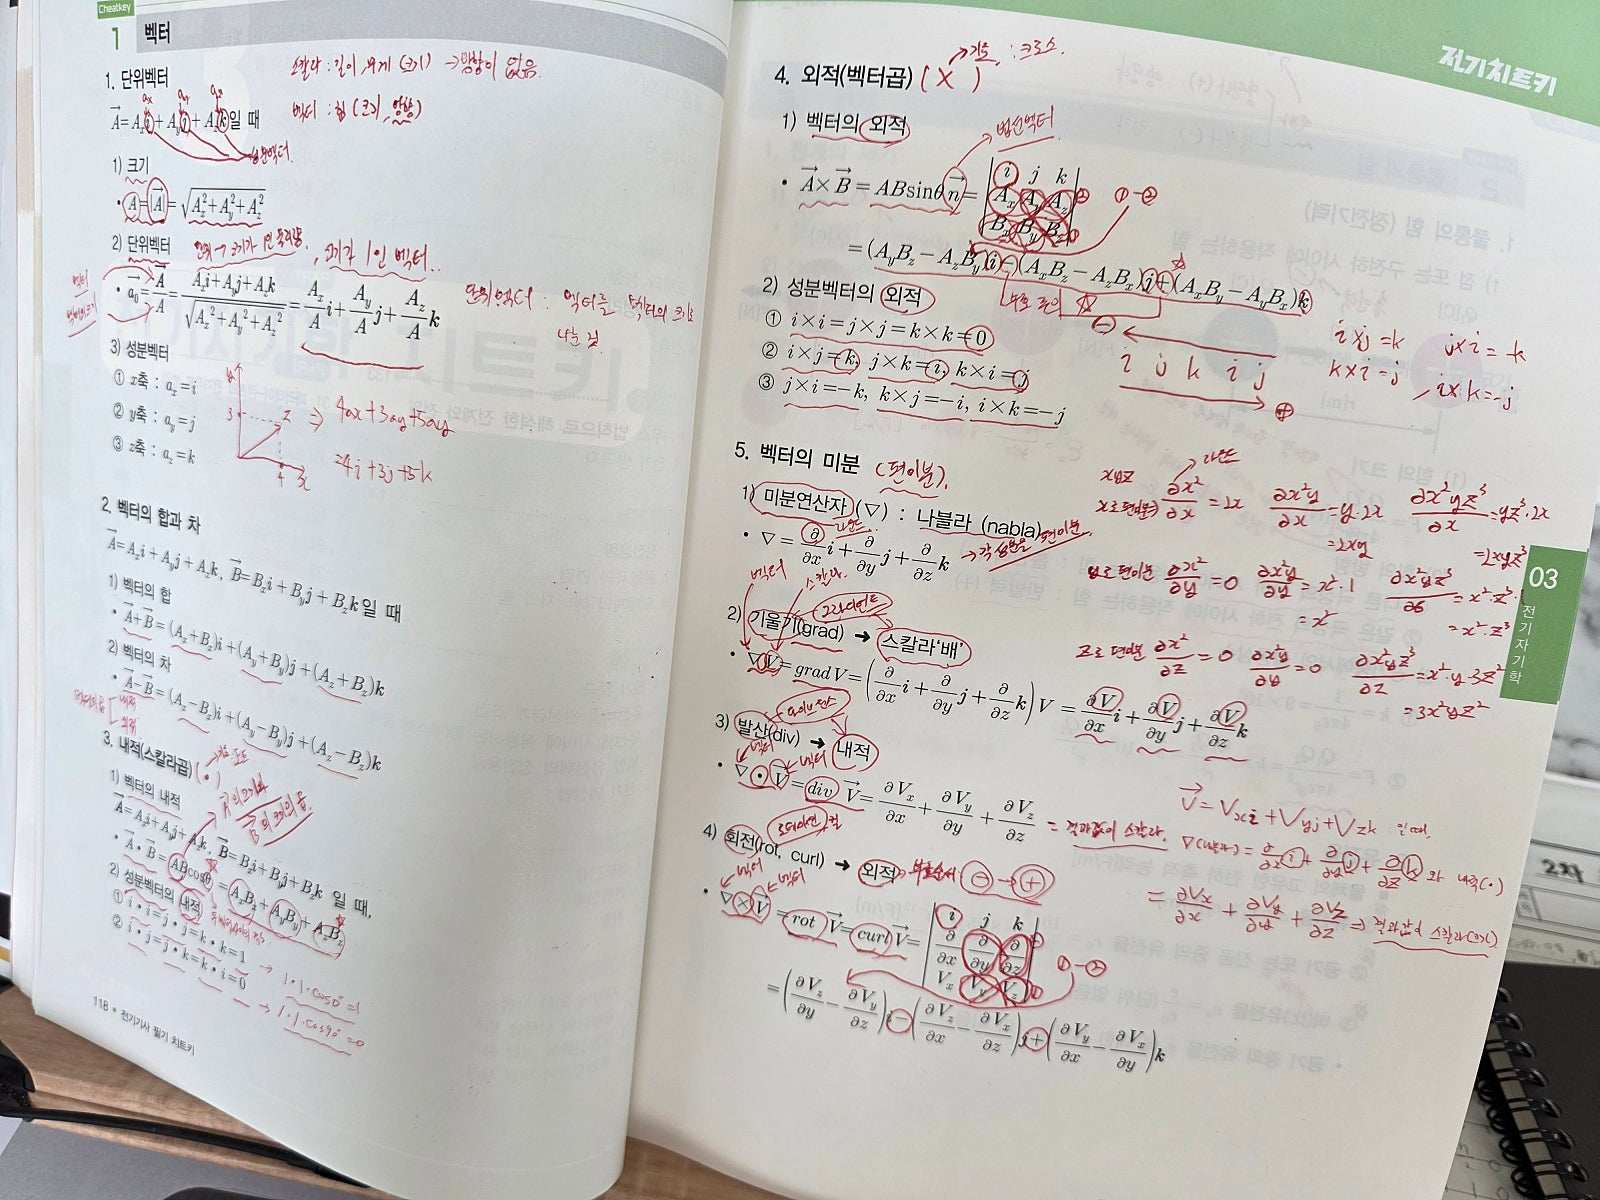 Cheatkey
1 벡터
스칼라 : 길이, 무게 (크기) → 방향이 없음
1. 단위벡터
ax ay az
벡터 : 힘 (크기, 방향)
A⃗ = Aₓi + A_y j + A_z k일 때
성분벡터
1) 크기
• A = |A⃗| = √(Aₓ² + A_y² + A_z²)
2) 단위벡터 단위 → 크기가 1인 물리량, 크기가 1인 벡터..
벡터
벡터의 크기
• a⃗₀ = A⃗/A = (Aₓi + A_y j + A_z k)/√(Aₓ² + A_y² + A_z²) = Aₓ/A i + A_y/A j + A_z/A k
단위벡터 : 벡터를 벡터의 크기로
나눈 것
3) 성분벡터
① x축 : aₓ = i
② y축 : a_y = j
③ z축 : a_z = k
y 3 z 4 x
⇒ 4ax + 3ay + 5ay
= 4i + 3j + 5k
2. 벡터의 합과 차
A⃗ = Aₓi + A_y j + A_z k, B⃗ = Bₓi + B_y j + B_z k일 때
1) 벡터의 합
• A⃗ + B⃗ = (Aₓ + Bₓ)i + (A_y + B_y)j + (A_z + B_z)k
2) 벡터의 차
• A⃗ − B⃗ = (Aₓ − Bₓ)i + (A_y − B_y)j + (A_z − B_z)k
벡터의 곱 내적
외적
3. 내적(스칼라곱) ( • )
1) 벡터의 내적
A의 크기와
B의 크기의 곱
A⃗ = Aₓi + A_y j + A_z k, B⃗ = Bₓi + B_y j + B_z k 일 때,
• A⃗ • B⃗ = ABcosθ = AₓBₓ + A_yB_y + A_zB_z
2) 성분벡터의 내적
① i • i = j • j = k • k = 1 → 1·1·cos0° = 1
② i • j = j • k = k • i = 0 → 1·1·cos90° = 0
118 • 전기기사 필기 치트키
전기치트키
4. 외적(벡터곱) ( X ) 기호 : 크로스.
1) 벡터의 외적
법선벡터
• A⃗ × B⃗ = ABsinθ n⃗ = | i j k |
| Aₓ A_y A_z | ②
| Bₓ B_y B_z | ①
① − ②
= (A_yB_z − A_zB_y)i − (AₓB_z − A_zBₓ)j + (AₓB_y − A_yBₓ)k
2) 성분벡터의 외적
① i × i = j × j = k × k = 0
② i × j = k, j × k = i, k × i = j
③ j × i = −k, k × j = −i, i × k = −j
⊖
i j k i j
⊕
i×j = k j×i = -k
k×i = j i×k = -j
5. 벡터의 미분 (편미분).
1) 미분연산자(▽) : 나블라 (nabla)
라운드
• ▽ = ∂/∂x i + ∂/∂y j + ∂/∂z k → 각 성분을 편미분.
xyz 라운드
x로 편미분 ∂x²/∂x = 2x ∂x²y/∂x = y·2x ∂x²yz³/∂x = yz³·2x
= 2xy = 2xyz³
y로 편미분 ∂x²/∂y = 0 ∂x²y/∂y = x²·1 ∂x²yz³/∂y = x²·z³·1
= x² = x²·z³
z로 편미분 ∂x²/∂z = 0 ∂x²y/∂y = 0 ∂x²yz³/∂z = x²·y·3z²
= 3x²yz²
벡터 스칼라.
그라디언트
2) 기울기(grad) → 스칼라‘배’
• ▽V = grad V = (∂/∂x i + ∂/∂y j + ∂/∂z k) V = ∂V/∂x i + ∂V/∂y j + ∂V/∂z k
다이버전스
3) 발산(div) → 내적
벡터 벡터
• ▽ • V⃗ = div V⃗ = ∂Vₓ/∂x + ∂V_y/∂y + ∂V_z/∂z = 결과값이 스칼라.
V⃗ = Vxi + Vyj + Vzk 일때,
▽(나블라) = ∂/∂x i + ∂/∂y j + ∂/∂z k 와 내적(•)
= ∂Vx/∂x + ∂Vy/∂y + ∂Vz/∂z ⇒ 결과값이 스칼라(크기)
로테이션, 컬
4) 회전(rot, curl) → 외적 부호순서 ⊖ → ⊕
벡터 벡터
• ▽ × V⃗ = rot V⃗ = curl V⃗ = | i j k |
| ∂/∂x ∂/∂y ∂/∂z |
| Vₓ V_y V_z |
① − ②
= (∂V_z/∂y − ∂V_y/∂z)i − (∂V_z/∂x − ∂Vₓ/∂z)j + (∂V_y/∂x − ∂Vₓ/∂y)k
03
전기자기학